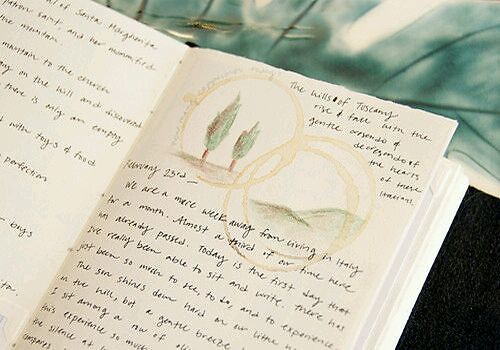 of Santa Margherita
patron saint and her mummified
the mountain
mountain to the church
on the hill and discovered
there is only an empty
with toys & food
perfection
boys
The hills of Tuscany
rise & fall with the
gentle cresendo &
decresendo of
the hearts
of these
Italians.
February 23rd —
We are a mere week away from living in Italy
for a month. Almost a third of our time here
has already passed. Today is the first day that
I've really been able to sit and write. There has
just been so much to see, to do, and to experience
The sun shines down hard on our little
in the hill, but a gentle breeze
I sit among a row of
this experience so much
the silence at
compares